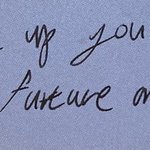 up you
future